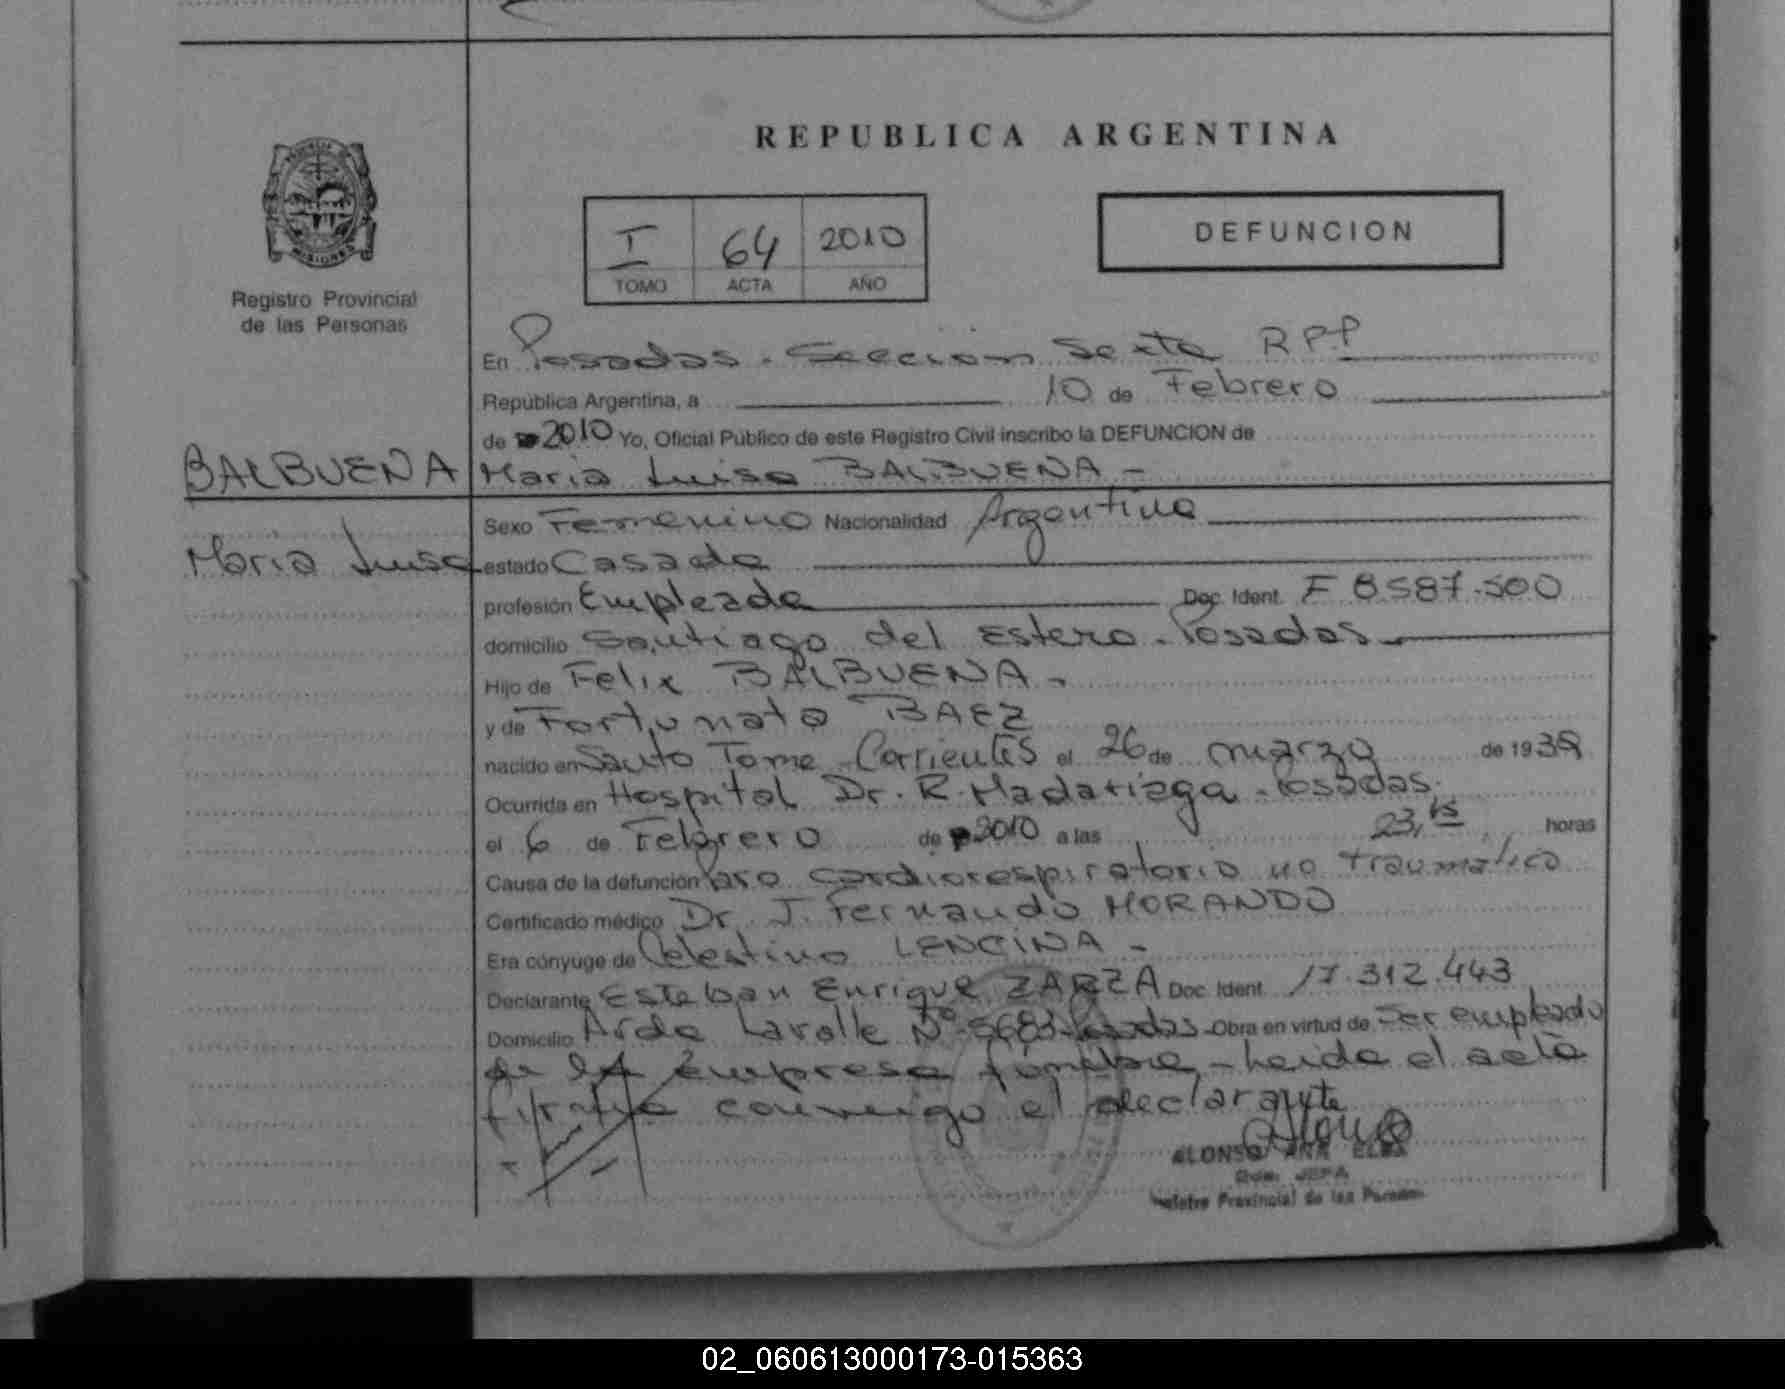 REPUBLICA ARGENTINA
PROVINCIA
MISIONES
Registro Provincial
de las Personas
I 64 2010
TOMO ACTA AÑO
DEFUNCION
En Posadas. Seccion Sexta RPP
República Argentina, a 10 de Febrero
de 2010 Yo, Oficial Público de este Registro Civil inscribo la DEFUNCION de
BALBUENA
Maria Luisa BALBUENA -
Maria Luisa
Sexo Femenino Nacionalidad Argentina
estado Casada
profesión Empleada Doc. Ident. F 8587.500
domicilio Santiago del Estero - Posadas
Hijo de Felix BALBUENA -
y de Fortunata BAEZ
nacido en Santo Tome Corrientes el 26 de marzo de 1939
Ocurrida en Hospital Dr. R. Madariaga - Posadas.
el 6 de Febrero de 2010 a las 23,15 horas
Causa de la defunción Paro cardiorespiratorio no traumatico
Certificado médico Dr. J. Fernando MORANDO
Era cónyuge de Celestino LENCINA -
Declarante Esteban Enrique ZARZA Doc. Ident. 17.312.443
Domicilio Avda Lavalle Nº 5683 Posadas Obra en virtud de Ser empleado
de la empresa fúnebre - Leida el acta
firma conmigo el declarante
ALONSO ANA ELBA
JEFA
Registro Provincial de las Personas
02_060613000173-015363